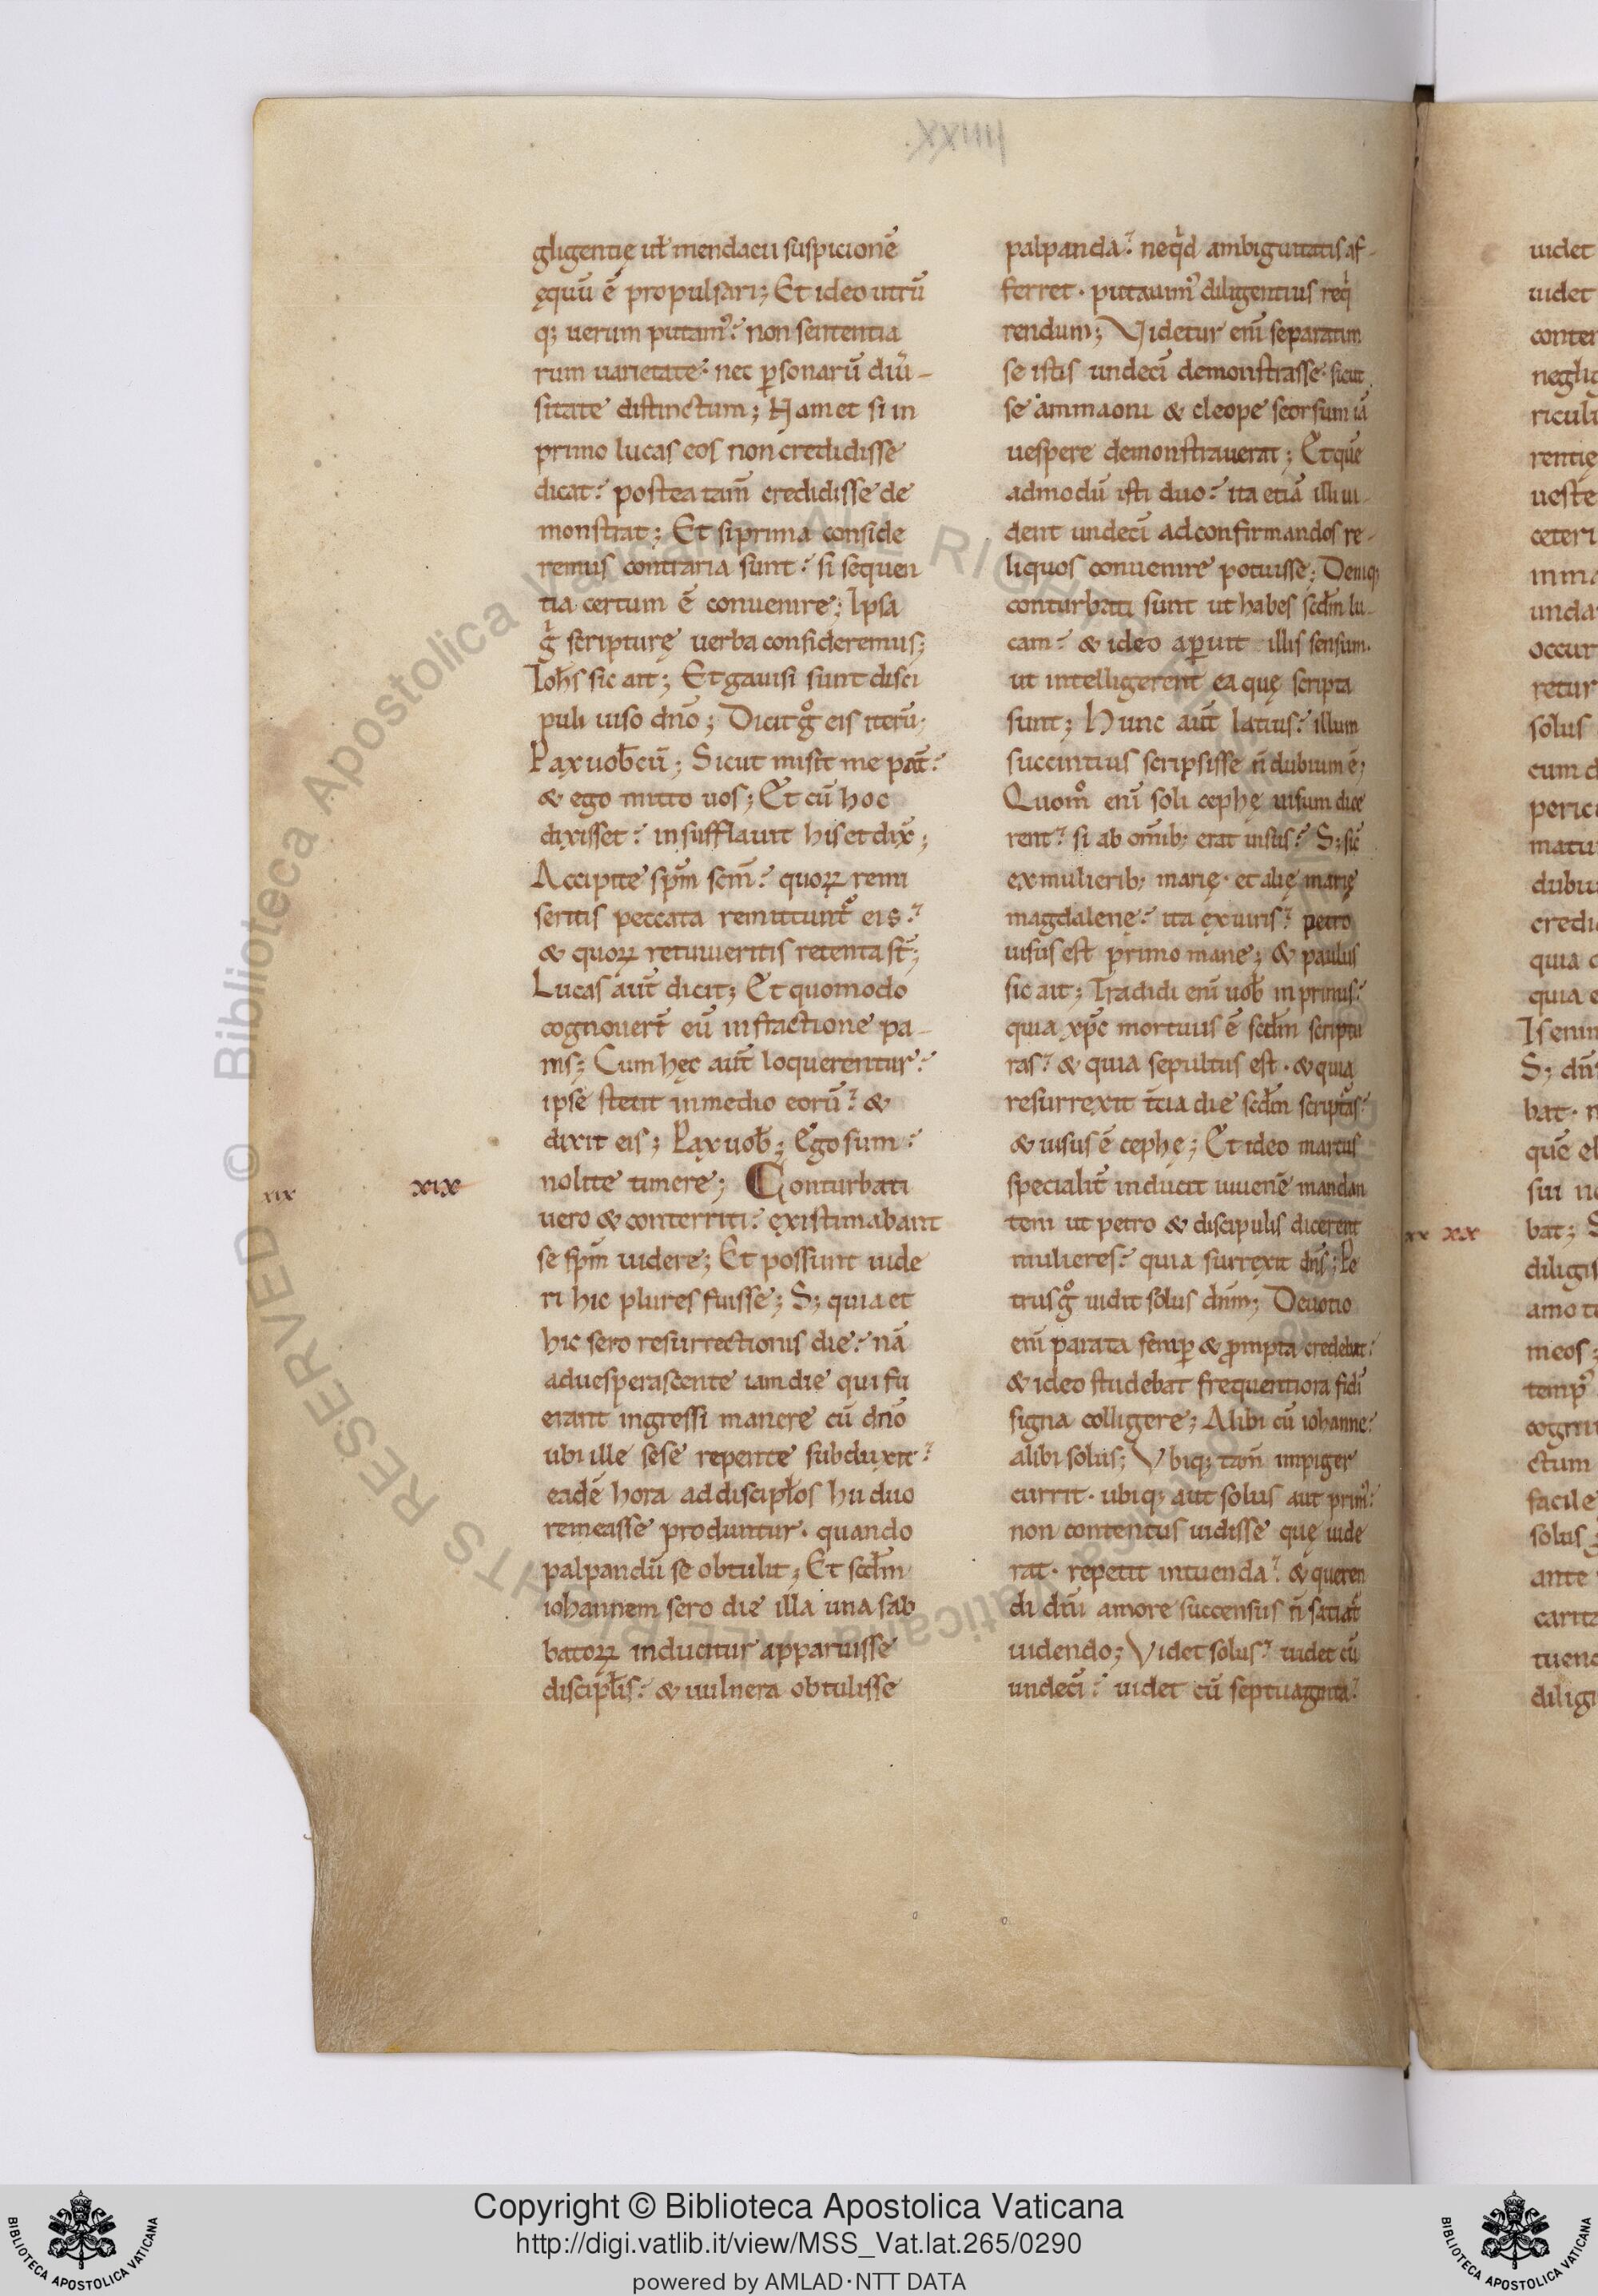 .XXIIII
gligentię ut̃ mendacii suspicionē
ęquū ē propulsari; Et ideo utrū
q; uerum putam᷒: non sententia
rum uarietate: nec ꝑsonarū diu̍-
sitate distinctum; Nam et si in
primo lucas eos non credidisse
dicat: postea tam̄ credidisse de
monstrat; Et si prima conside
remus contraria sunt: si sequen
tia certum ē conuenire; Ipsa
g̍ scripturę uerba consideremus;
Ioh̄s sic ait; Et gauisi sunt disci
puli uiso dn̄o; Dicit gͦ eis iterū;
Pax uob̄cū; Sicut misit me pat̄:
& ego mitto uos; Et cū hoc
dixisset: insufflauit his et dix̄;
Accipite sp̄m sc̄m: quoꝝ remi
seritis peccata remittunt᷒ eis:
& quoꝝ retinueritis retenta st̄;
Lucas aut̄ dicit; Et quomodo
cognouert̄ eū in fractione pa-
nis; Cum hęc aut̄ loquerentur:
ipse stetit in medio eorū: &
dixit eis; Pax uob̄; Ego sum:
nolite timere; Conturbati
xix xix
uero & conterriti: ęxistimabant
se sp̄m uidere; Et possunt uide
ri hic plures fuisse; S; quia et
hic sero resurrectionis die: nā
aduesperascente iam die qui fu
erant ingressi manere cū dn̄o
ubi ille sese repente subduxit:
eadē hora ad discipl̄os hii duo
remeasse produntur. quando
palpandū se obtulit; Et scd̄m
iohannem sero die illa una sab
batoꝝ inducitur apparuisse
discipl̄is: & uulnera obtulisse
palpanda: neq̍d ambiguitatis af-
ferret. putauim᷒ diligentius req̍
rendum; Videtur eni̅ separatim
se istis undecī demonstrasse. sicut
se ammaoni & cleope seorsum iā
uespere demonstrauerat; Et quē
admodū isti duo: ita etiā illi ui-
dent undecī ad confirmandos re-
liquos conuenire potuisse; Deniq;
conturbati sunt ut habes scd̄m lu-
cam: & ideo aꝑuit illis sensum.
ut intelligerent ea quę scripta
sunt; Hunc aut̄ latius: illum
succintius scripsisse n̄ dubium ē;
Quomͦ eni̅ soli cephę uisum dice
rent: si ab om̄ib; erat uisus: S; sic
ex mulierib; marię. et alię marię
magdalenę: ita ęx uiris: petro
uisus est primo mane; & paulus
sic ait; Tradidi eni̅ uob̄ in primis:
quia xp̄c mortuus ē scd̄m scriptu
ras: & quia sepultus est. & quia
resurręxit t̄cia die scd̄m script᷒as:
& uisus ē cephę; Et ideo marcus
specialit̄ inducit iuuenē mandan
tem ut petro & discipulis dicerent
mulieres: quia surręxit dn̄s; Pe
trus gͦ uidit solus dn̄m; Deuotio
eni̅ parata semꝑ & ꝓmpta credebat:
& ideo studebat frequentiora fidi
signa colligere; Alibi cū iohanne:
alibi solus; Vbiq; tam̄ impiger
currit. ubiq; aut solus aut prim᷒:
non contentus uidisse quę uide
rat. repetit intuenda: & queren
di dn̄i amore succensus n̄ satiat᷒
uidendo; Videt solus: uidet cū
undecī: uidet cū septuaginta:
uidet
uidet
neglig
riculi
rentię
ueste
ceteri
occur
retur
solus
cum d
credi
quia
quia
Is enim
bat.
sui n
xx xx
bat; S
diligis
amo te
meos;
facile
solus
ante
carita
Copyright © Biblioteca Apostolica Vaticana
http://digi.vatlib.it/view/MSS_Vat.lat.265/0290
powered by AMLAD·NTT DATA
BIBLIOTECA APOSTOLICA VATICANA
BIBLIOTECA APOSTOLICA VATICANA
© Biblioteca Apostolica Vaticana ALL RIGHTS RESERVED